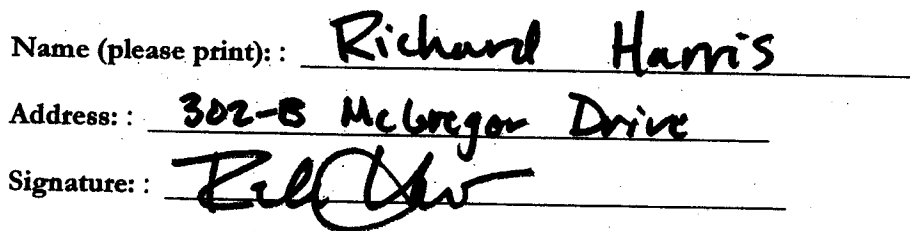 Name (please print): : Richard Harris
Address: : 302-B McGregor Drive
Signature: :